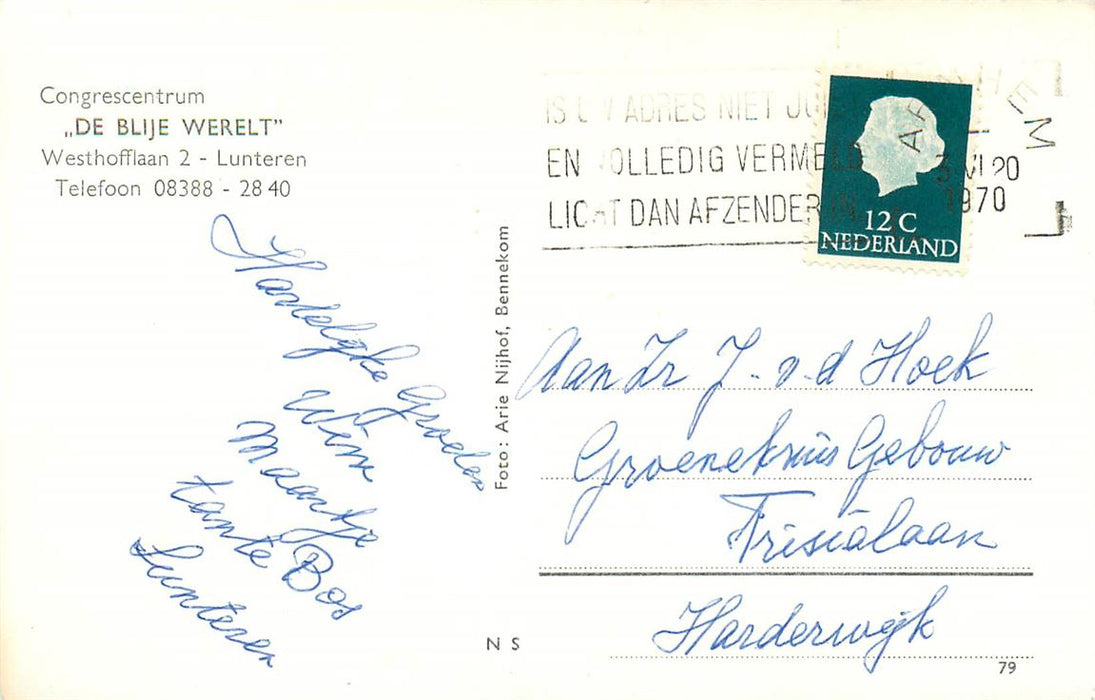 Congrescentrum
„DE BLIJE WERELT"
Westhofflaan 2 - Lunteren
Telefoon 08388 - 28 40
Hartelijke Groeten
Wim
Maartje
tante Bos
Lunteren
Foto: Arie Nijhof, Bennekom
N S
IS UW ADRES NIET JU
EN VOLLEDIG VERMELD
LICHT DAN AFZENDER IN
ARNHEM
3 VI 20
1970
12 C
NEDERLAND
Aan Zr J. v. d Hoek
Groenekruis Gebouw
Frisialaan
Harderwijk
79